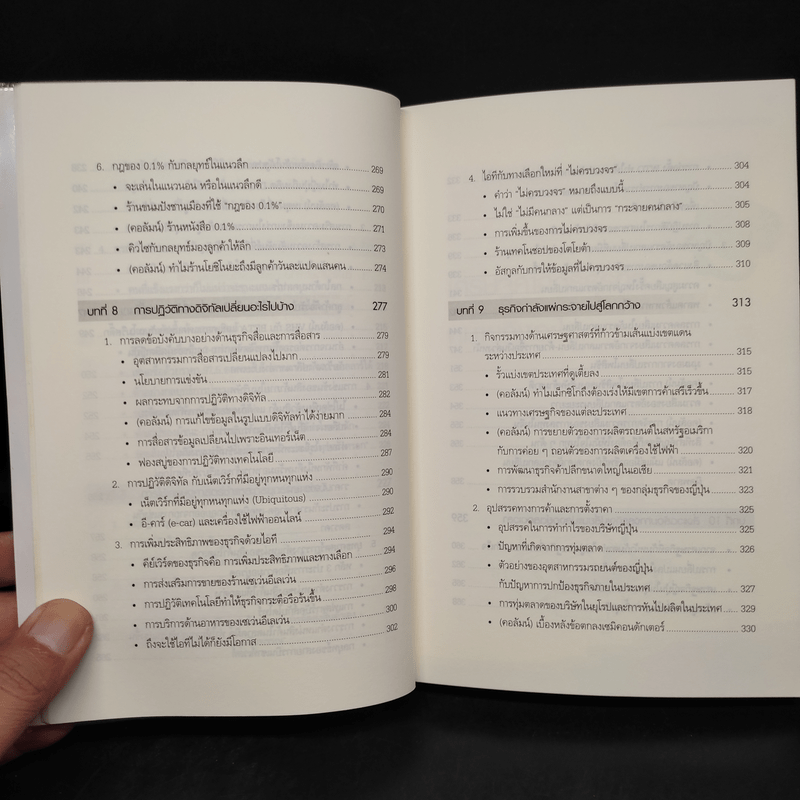 6. กฎของ 0.1% กับกลยุทธ์ในแนวลึก 269
• จะเล่นในแนวนอน หรือในแนวลึกดี 269
• ร้านขนมปังชานเมืองที่ใช้ "กฎของ 0.1%" 270
• (คอลัมน์) ร้านหนังสือ 0.1% 271
• คิวไซกับกลยุทธ์มองลูกค้าให้ลึก 273
• (คอลัมน์) ทำไมร้านโยชิโนยะถึงมีลูกค้าวันละแปดแสนคน 274
บทที่ 8 การปฏิวัติทางดิจิทัลเปลี่ยนอะไรไปบ้าง 277
1. การลดข้อบังคับบางอย่างด้านธุรกิจสื่อและการสื่อสาร 279
• อุตสาหกรรมการสื่อสารเปลี่ยนแปลงไปมาก 279
• นโยบายการแข่งขัน 281
• ผลกระทบจากการปฏิวัติทางดิจิทัล 282
• (คอลัมน์) การแก้ไขข้อมูลในรูปแบบดิจิทัลทำได้ง่ายมาก 284
• การสื่อสารข้อมูลเปลี่ยนไปเพราะอินเทอร์เน็ต 284
• ฟองสบู่ของการปฏิวัติทางเทคโนโลยี 287
2. การปฏิวัติดิจิทัล กับเน็ตเวิร์กที่มีอยู่ทุกหนทุกแห่ง 290
• เน็ตเวิร์กที่มีอยู่ทุกหนทุกแห่ง (Ubiquitous) 290
• อี-คาร์ (e-car) และเครื่องใช้ไฟฟ้าออนไลน์ 292
3. การเพิ่มประสิทธิภาพของธุรกิจด้วยไอที 294
• คีย์เวิร์ดของธุรกิจคือ การเพิ่มประสิทธิภาพและทางเลือก 294
• การส่งเสริมการขายของร้านเซเว่นอีเลฟเว่น 296
• การปฏิวัติเทคโนโลยีทำให้ธุรกิจกระตือรือร้นขึ้น 298
• การบริการด้านอาหารของเซเว่นอีเลเว่น 300
• ถึงจะใช้ไอทีไม่ได้ก็ยังมีโอกาส 302
4. ไอทีกับทางเลือกใหม่ที่ "ไม่ครบวงจร" 304
• คำว่า "ไม่ครบวงจร" หมายถึงแบบนี้ 304
• ไม่ใช่ "ไม่มีคนกลาง" แต่เป็นการ "กระจายคนกลาง" 305
• การเพิ่มขึ้นของการไม่ครบวงจร 308
• ร้านเทคโนชอปของโตโยต้า 309
• อัสกูลกับการให้ข้อมูลที่ไม่ครบวงจร 310
บทที่ 9 ธุรกิจกำลังแผ่กระจายไปสู่โลกกว้าง 313
1. กิจกรรมทางด้านเศรษฐศาสตร์ที่ก้าวข้ามเส้นแบ่งเขตแดน
ระหว่างประเทศ 315
• รั้วแบ่งเขตประเทศที่ดูเตี้ยลง 315
• (คอลัมน์) ทำไมเม็กซิโกถึงต้องเร่งให้มีเขตการค้าเสรีเร็วขึ้น 317
• แนวทางเศรษฐกิจของแต่ละประเทศ 318
• (คอลัมน์) การขยายตัวของการผลิตรถยนต์ในสหรัฐอเมริกา
กับการค่อย ๆ ถอนตัวของการผลิตเครื่องใช้ไฟฟ้า 320
• การพัฒนาธุรกิจค้าปลีกขนาดใหญ่ในเอเชีย 321
• การรวบรวมสำนักงานสาขาต่าง ๆ ของกลุ่มธุรกิจของญี่ปุ่น 323
2. อุปสรรคทางการค้าและการตั้งราคา 325
• อุปสรรคในการทำกำไรของบริษัทญี่ปุ่น 325
• ปัญหาที่เกิดจากการทุ่มตลาด 326
• ตัวอย่างของอุตสาหกรรมรถยนต์ของญี่ปุ่น
กับปัญหาการปกป้องธุรกิจภายในประเทศ 327
• การทุ่มตลาดของบริษัทในยุโรปและการหันไปผลิตในประเทศ 329
• (คอลัมน์) เบื้องหลังข้อตกลงเซมิคอนดักเตอร์ 330